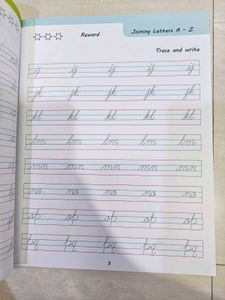 Reward
Joining Letters A - Z
Trace and write
ij ij ij ij ij
jk jk jk jk jk
kl kl kl kl kl
lm lm lm lm lm
mn mn mn mn mn
no no no no no
op op op op op
pq pq pq pq pq
3